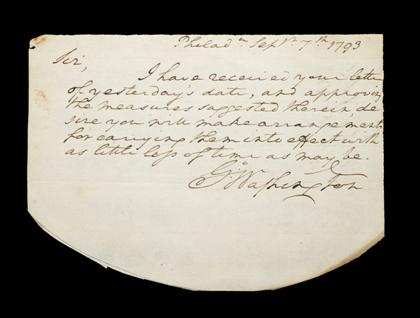 Philad.ᵃ Sepᵗ 7ᵗʰ 1793
Sir,
I have received your letter
of yesterday's date, and approving
the measures suggested therein, de
sire you will make arrangements
for carrying them into effect with
as little loss of time as may be.
Gᵒ Washington